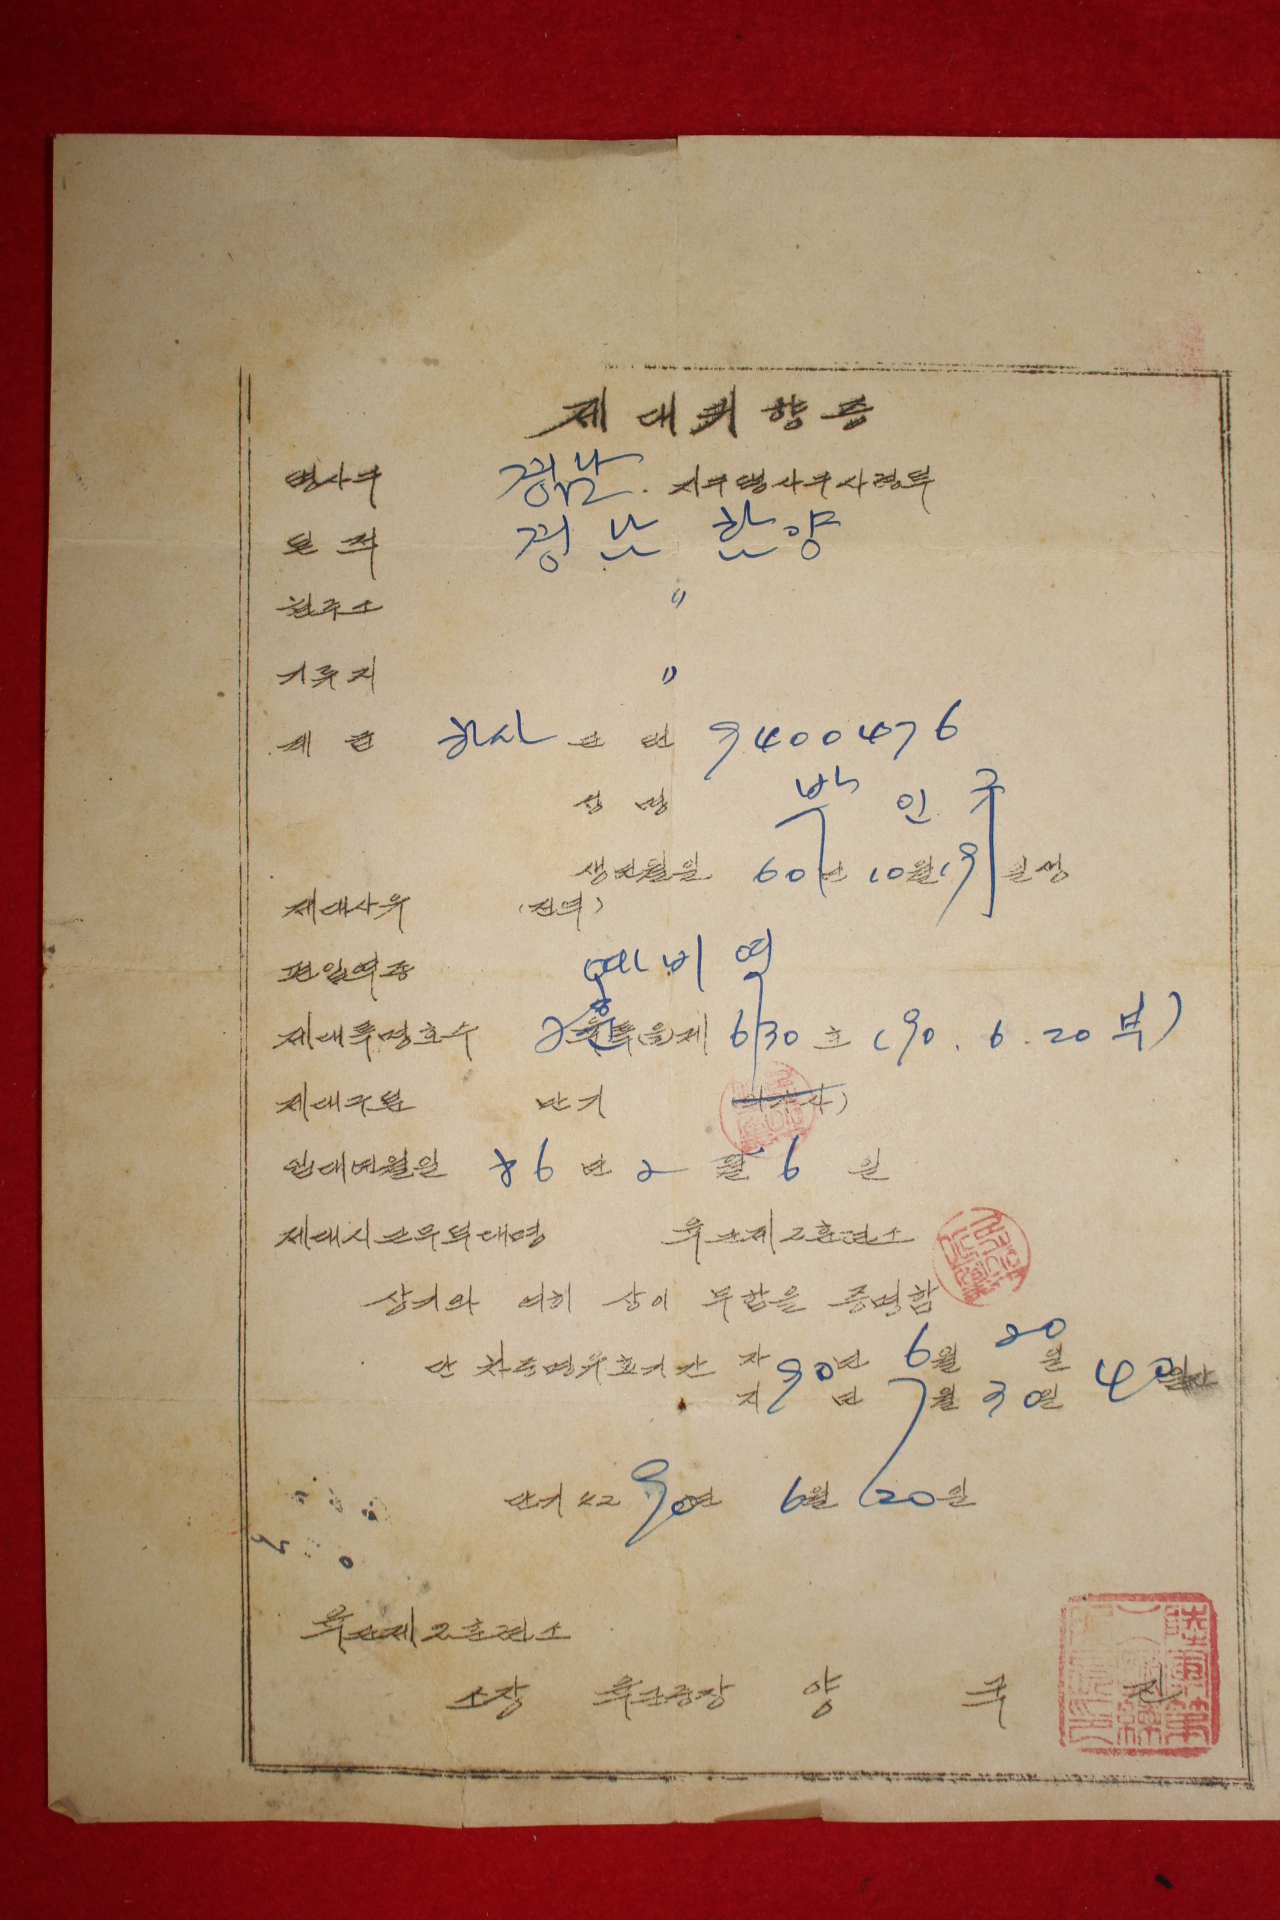 제대귀향증
병사구 경남 지구병사구사령부
본적 경남 함양
원주소 〃
기류지 〃
계급 하사 군번 9400476
성명 박인국
생년월일 60년 10월 19일생
제대사유 (전역)
편입역종 예비역
제대특명호수 2훈특(을)제 630호 (90. 6. 20 부)
제대구분 만기
입대년월일 86년 2월 6일
제대시근무부대명 육군제2훈련소
상기와 여히 상이 무함을 증명함
단 차증명유효기간 자 90년 6월 20일
지 90년 7월 30일 40일간
단기 4290년 6월 20일
육군제2훈련소
소장 육군중장 양국진